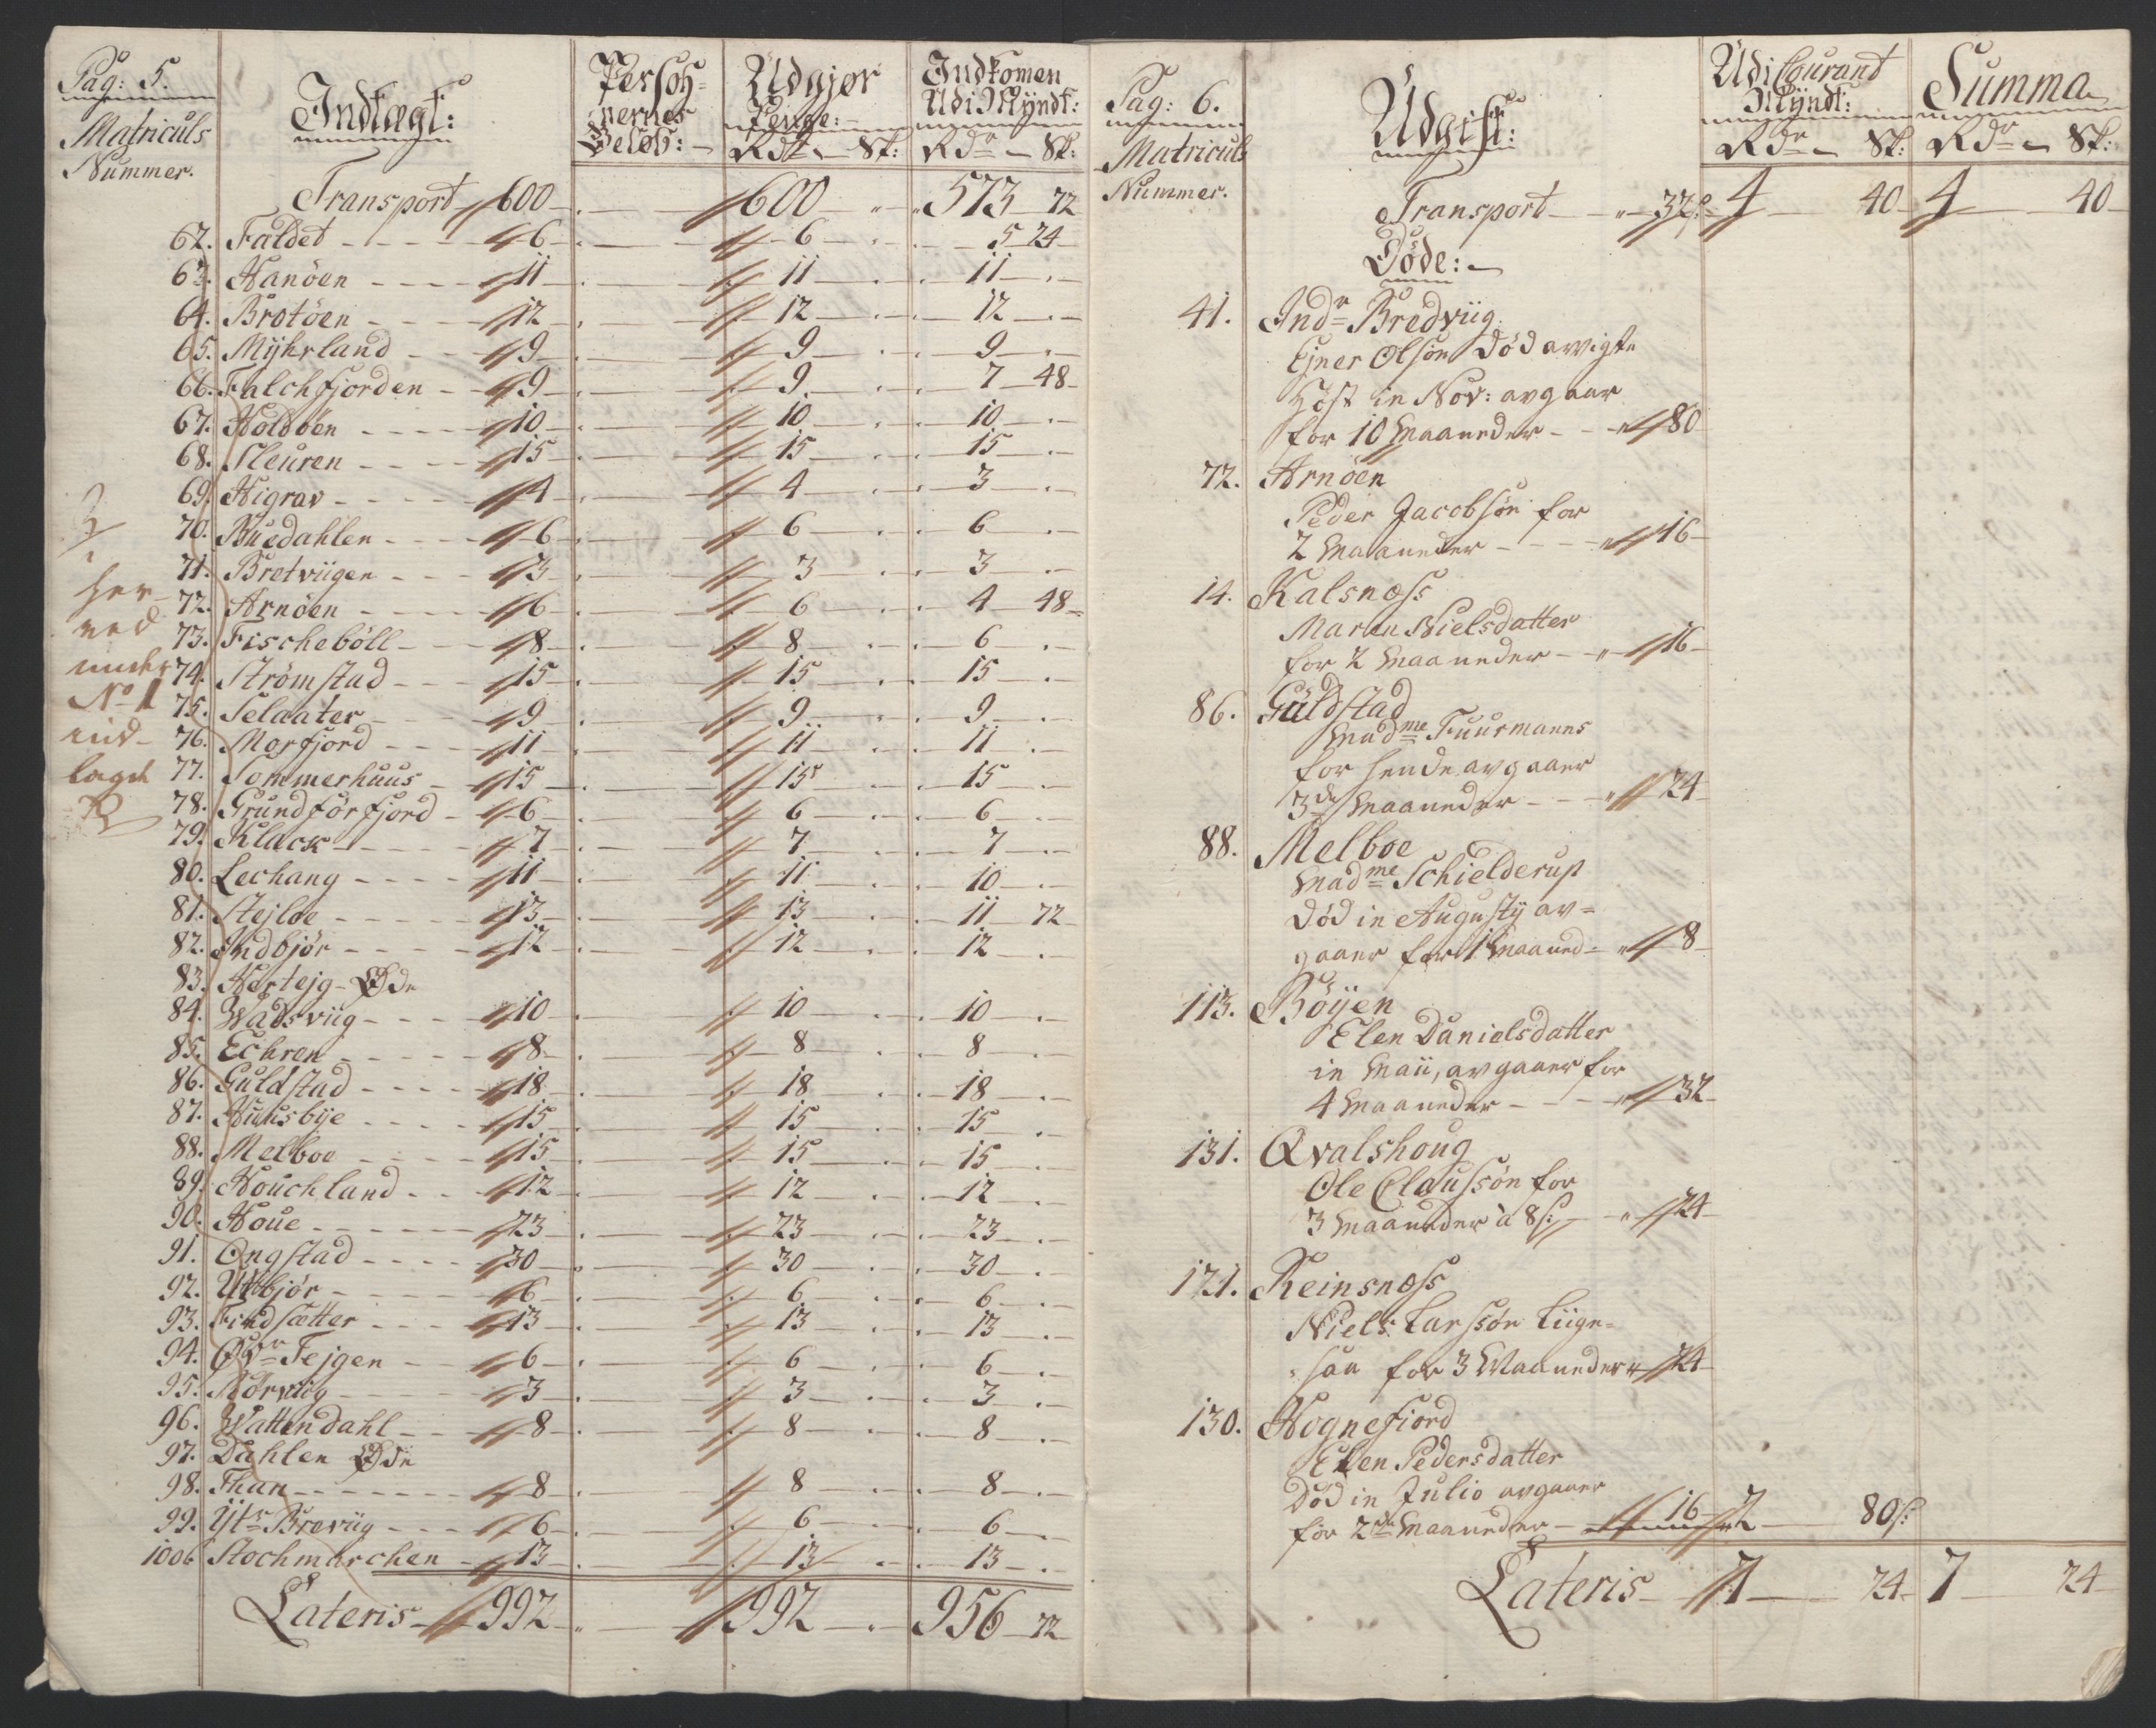 Pag: 5.
Matriculs
Nummer.
Indtægt:
Persoh-
nernes
Beløb:
Udgjør
Penge:
Rdr Sk:
Indkomen
Udi Mÿndt:
Rdr Sk:
Transport 600 600 573 72
62. Faldet 6 6 5 24
63. Hanöen 11 11 11
64. Brotöen 12 12 12
65. Mÿhrland 9 9 9
66. Falchfjorden 9 9 7 48
67. Holdöen 10 10 10
68. Sleuren 15 15 15
69. Higrav 4 4 3
70. Buedahlen 6 6 6
71. Bretviigen 3 3 3
72. Arnöen 6 6 4 48
73. Fischeböll 8 8 6
74. Strömstad 15 15 15
75. Selaater 9 9 9
76. Morfjord 11 11 11
77. Sommerhuus 15 15 15
78. Grundförfjord 6 6 6
79. Klack 7 7 7
80. Lechang 11 11 10
81. Stejloe 13 13 11 72
82. Indbjör 12 12 12
83. Hertejg Øde
84. Wadsviig 10 10 10
85. Echren 8 8 8
86. Guldstad 18 18 18
87. Huusbye 15 15 15
88. Melboe 15 15 15
89. Houchland 12 12 12
90. Houe 23 23 23
91. Ongstad 30 30 30
92. Utbjör 6 6 6
93. Findsætter 13 13 13
94. Øvr Fejgen 6 6 6
95. Morviig 3 3 3
96. Wattendahl 8 8 8
97. Dahlen Øde
98. Than 8 8 8
99. Ÿtr Breviig 6 6 6
100. Stochmarchen 13 13 13
Lateris 992 992 956 72
her-
ved
under
No 1
ind-
lagd
Pag: 6.
Matriculs
Nummer.
Udgift:
Udi Courant
Mÿndt:
Rdr Sk:
Summa
Rdr Sk:
Transport 32 4 40 4 40
Döde:
41. Indr Bredviig
Ejner Olsön död avvigte
Höst in Nov: avgaar
for 10 Maaneder 80
72. Arnöen
Peder Jacobsön for
2 Maaneder 16
14. Kalsnæss
Maren Nielsdatter
for 2 Maaneder 16
86. Guldstad
Madme Fuurmanns
for hende avgaaer
3de Maaneder 24
88. Melboe
Madme Schielderup
död in Augustÿ av-
gaaer for 1 Maaned 8
113. Böÿen
Elen Danielsdatter
in Maii, avgaaer for
4 Maaneder 32
131. Qvalshoug
Ole Claussön for
3 Maaneder à 8 s: 24
121. Reinsnæss
Niels Larssön liige-
saa for 3 Maaneder 24
130. Hognefiord
Elen Pedersdatter
Död in Julio avgaaer
for 2de Maaneder 16 2 80 s:
Lateris 7 24 7 24